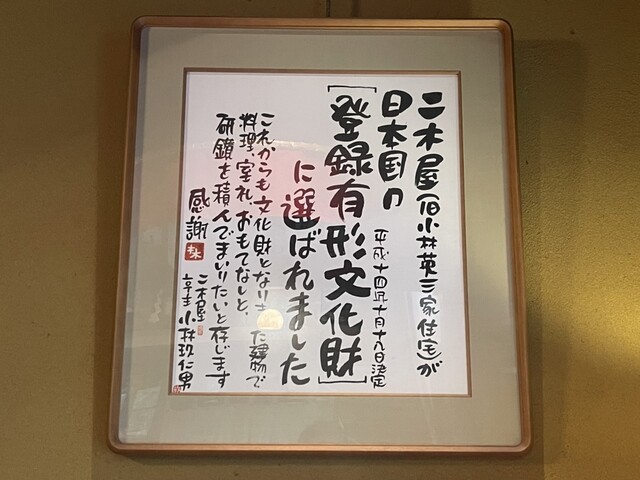 二木屋(旧小林英三家住宅)が
日本国の
平成十四年十月十九日決定
[登録有形文化財]
に選ばれました
これからも文化財となりました建物で
料理、室礼、おもてなしと、
研鑽を積んでまいりたいと存じます
感謝
二木屋
亭主 小林玖仁男